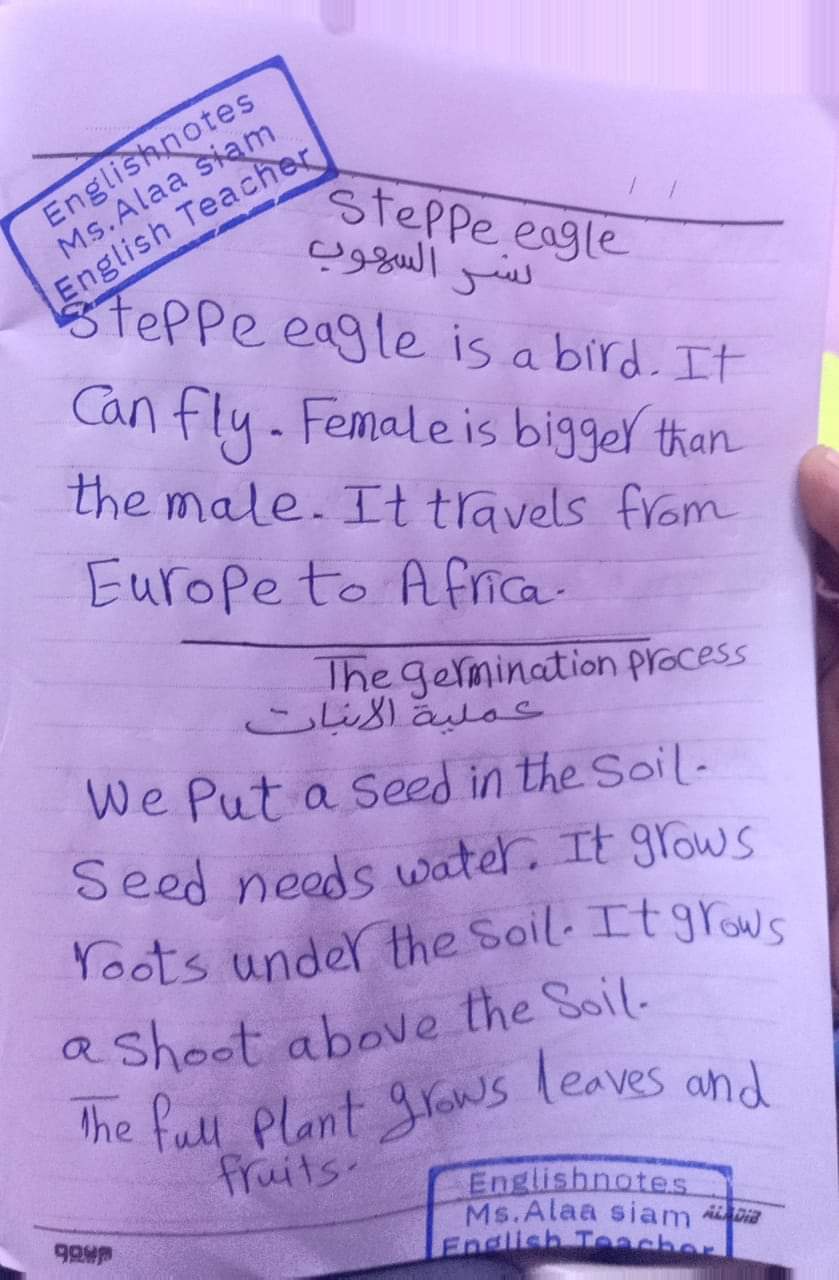 Englishnotes
Ms.Alaa siam
English Teacher
/ /
Steppe eagle
نسر السهوب
Steppe eagle is a bird. It
Can fly. Female is bigger than
the male. It travels from
Europe to Africa.
The germination process
عملية الانبات
We Put a seed in the soil.
Seed needs water. It grows
roots under the soil. It grows
a shoot above the Soil.
The full plant grows leaves and
fruits.
Englishnotes
Ms.Alaa siam
English Teacher